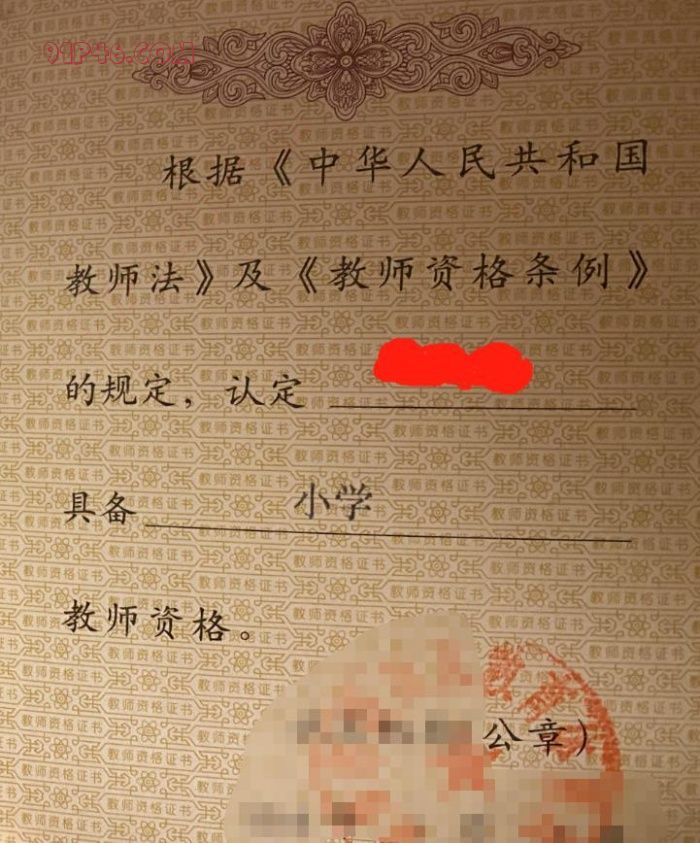 91P46.COM
根据《中华人民共和国
教师法》及《教师资格条例》
的规定，认定
具备 小学
教师资格。
公章）
教育